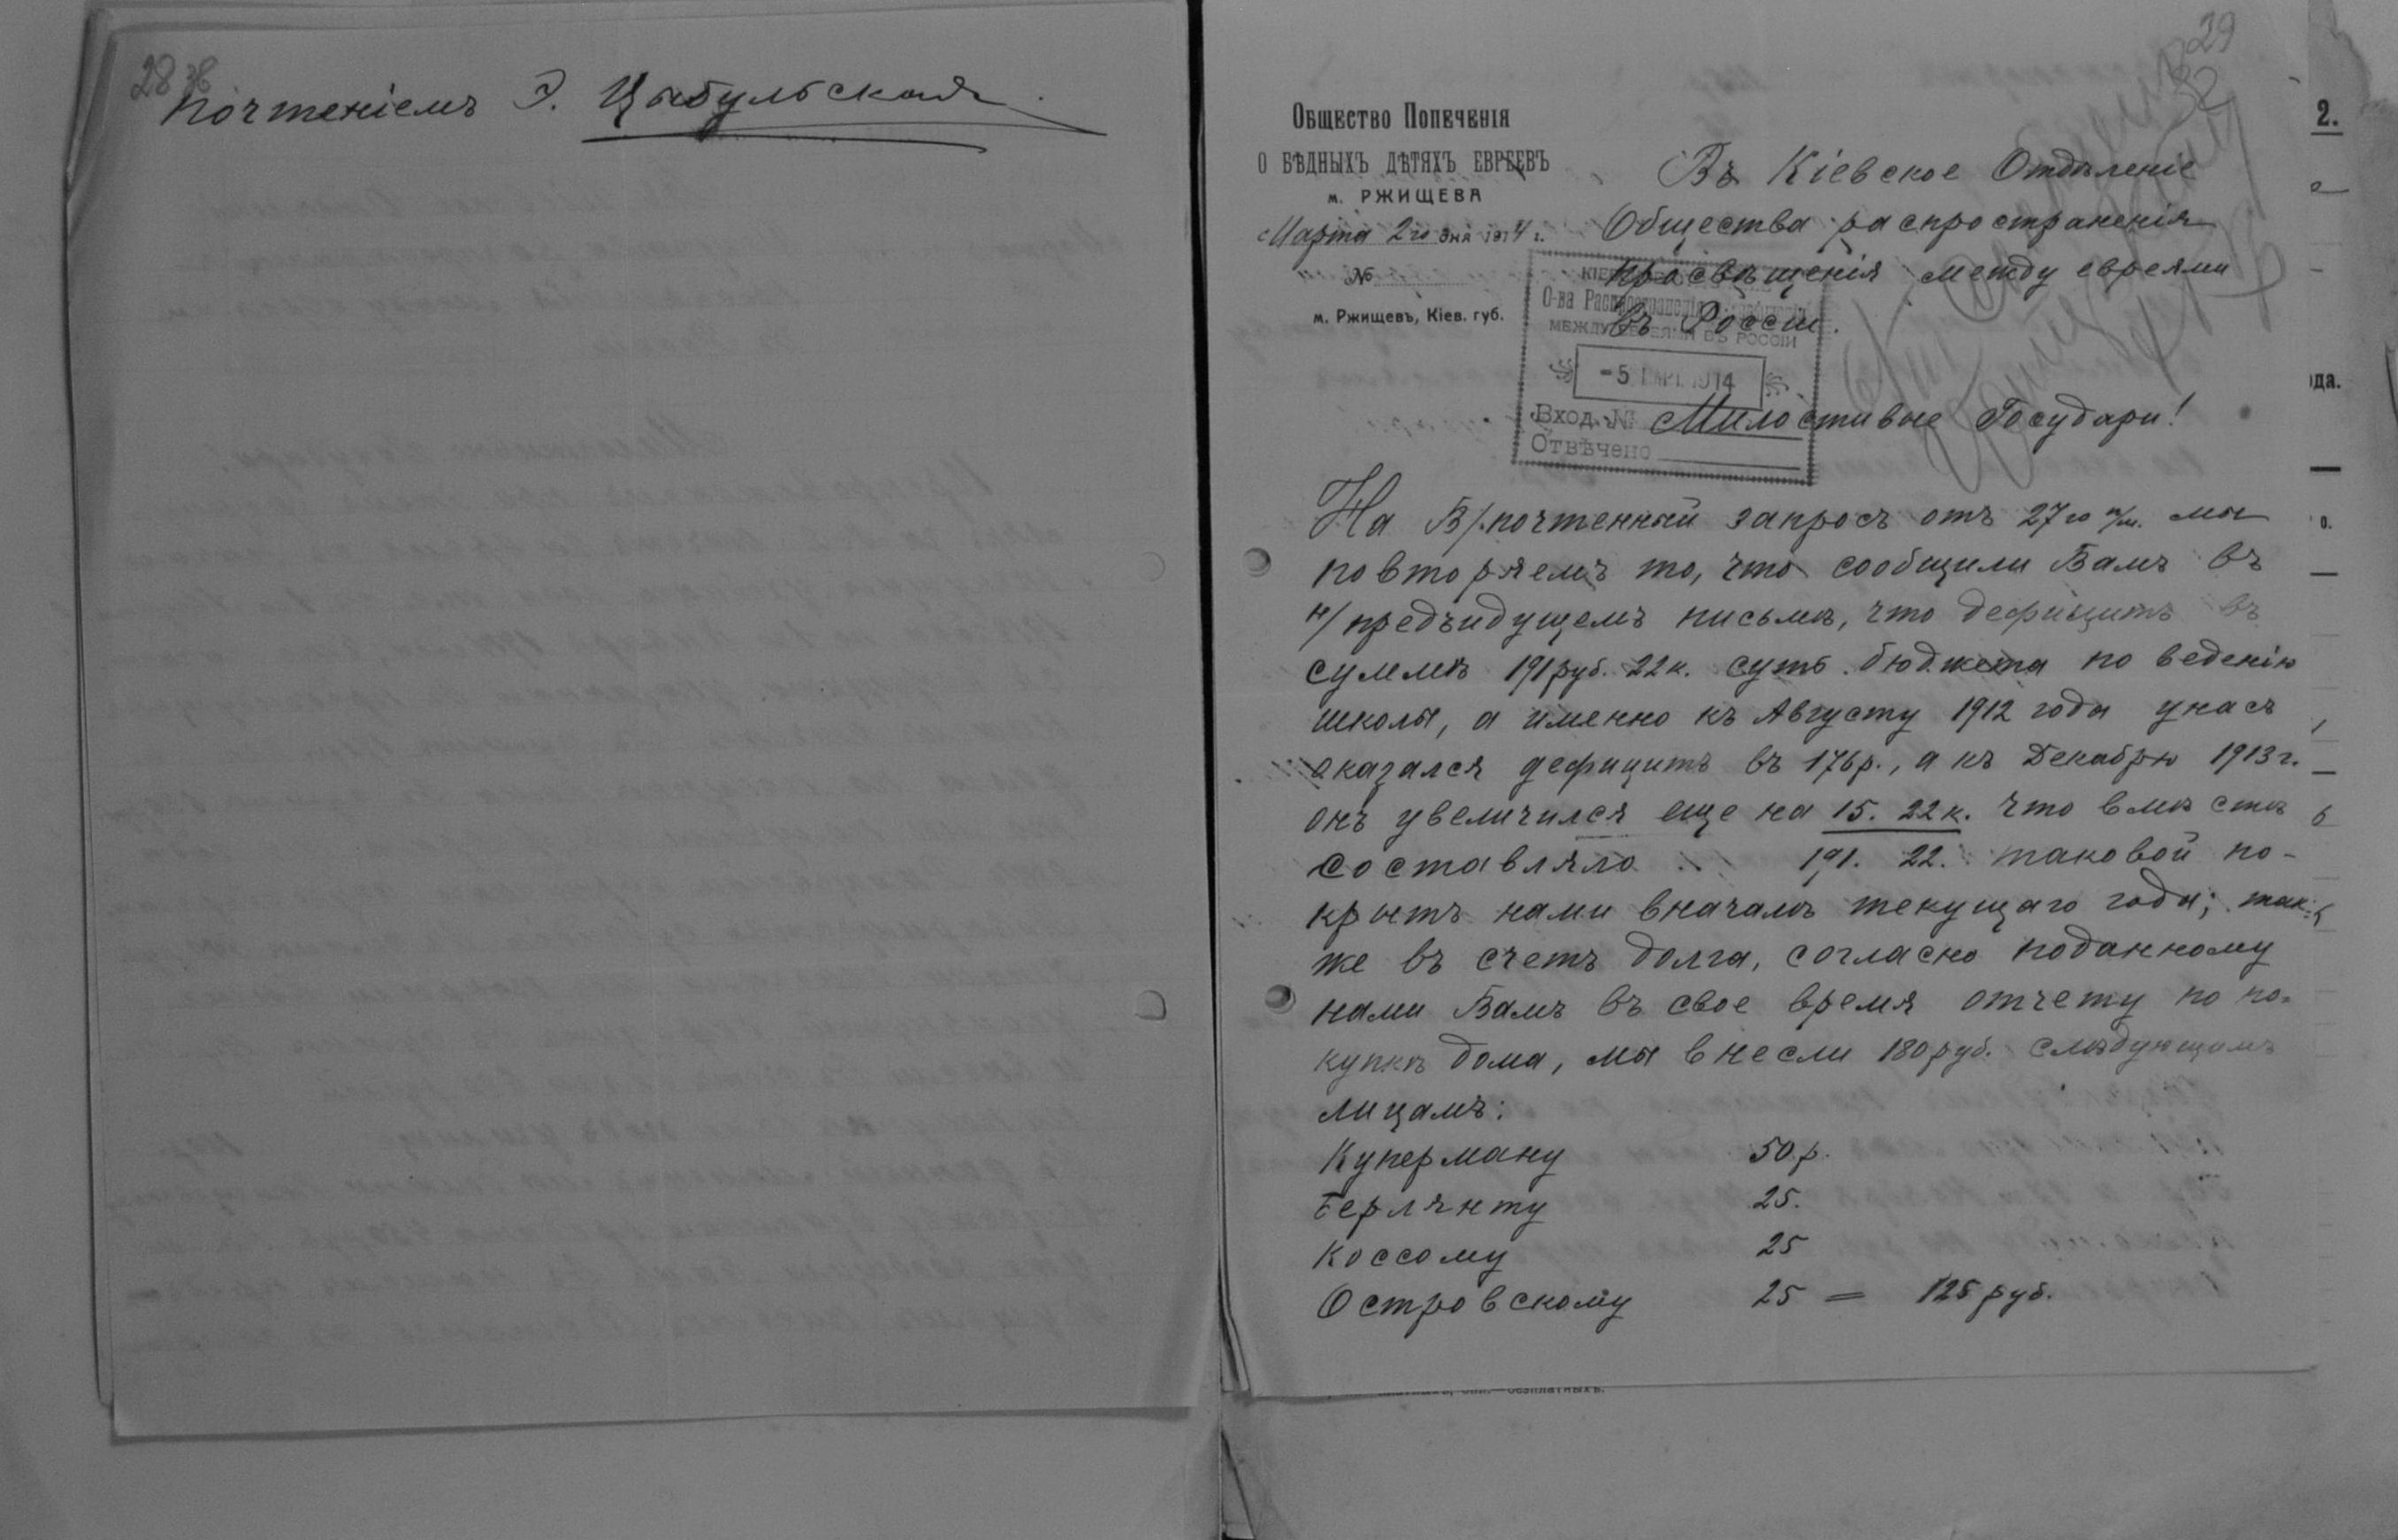 28 об
почтеніемъ Э. Цыбульская.
29
32
Общество Попеченія
о бѣдныхъ дѣтяхъ евреевъ
м. РЖИЩЕВА
Марта 2го дня 1914 г.
№
м. Ржищевъ, Кіев. губ.
Въ Кіевское Отдѣленіе
Общества распространенія
просвѣщенія между евреями
въ Россіи.
О-ва Распространенія
МЕЖДУ ЕВРЕЯМИ ВЪ РОССІИ
-5 МРТ. 1914
Вход. №
Отвѣчено
Милостивые Государи!
На В/почтенный запросъ отъ 27го п/м. мы
повторяемъ то, что сообщили Вамъ въ
н/предъидущемъ письмѣ, что дефицитъ въ
суммѣ 191 руб. 22 к. суть бюджета по веденію
школы, а именно къ Августу 1912 года у насъ
оказался дефицитъ въ 176 р., а къ Декабрю 1913 г.
онъ увеличился еще на 15. 22 к. что вмѣстѣ
составляло 191. 22. таковой по-
крытъ нами вначалѣ текущаго года; так-
же въ счетъ долга, согласно поданному
нами Вамъ въ свое время отчету по по-
купкѣ дома, мы внесли 180 руб. слѣдующимъ
лицамъ:
Куперману 50 р.
Берлянту 25.
Коссому 25
Островскому 25 = 125 руб.
2.
ода.
о.
безплатныхъ.